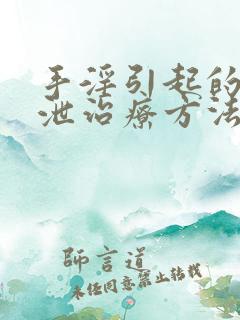 手淫引起的
泄治疗方法
師言道
未经同意禁止转载